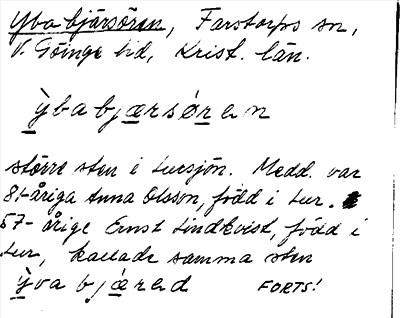 Yba bjärsören, Farstorps sn,
V. Göinge hd, Krist. län.
ỳbabjærsøren
större sten i Lursjön. Medd. var
81-åriga Anna Olsson, född i Lur.
57-årige Ernst Lindkvist, född i
Lur, kallade samma sten
ỳva bjæred FORTS!